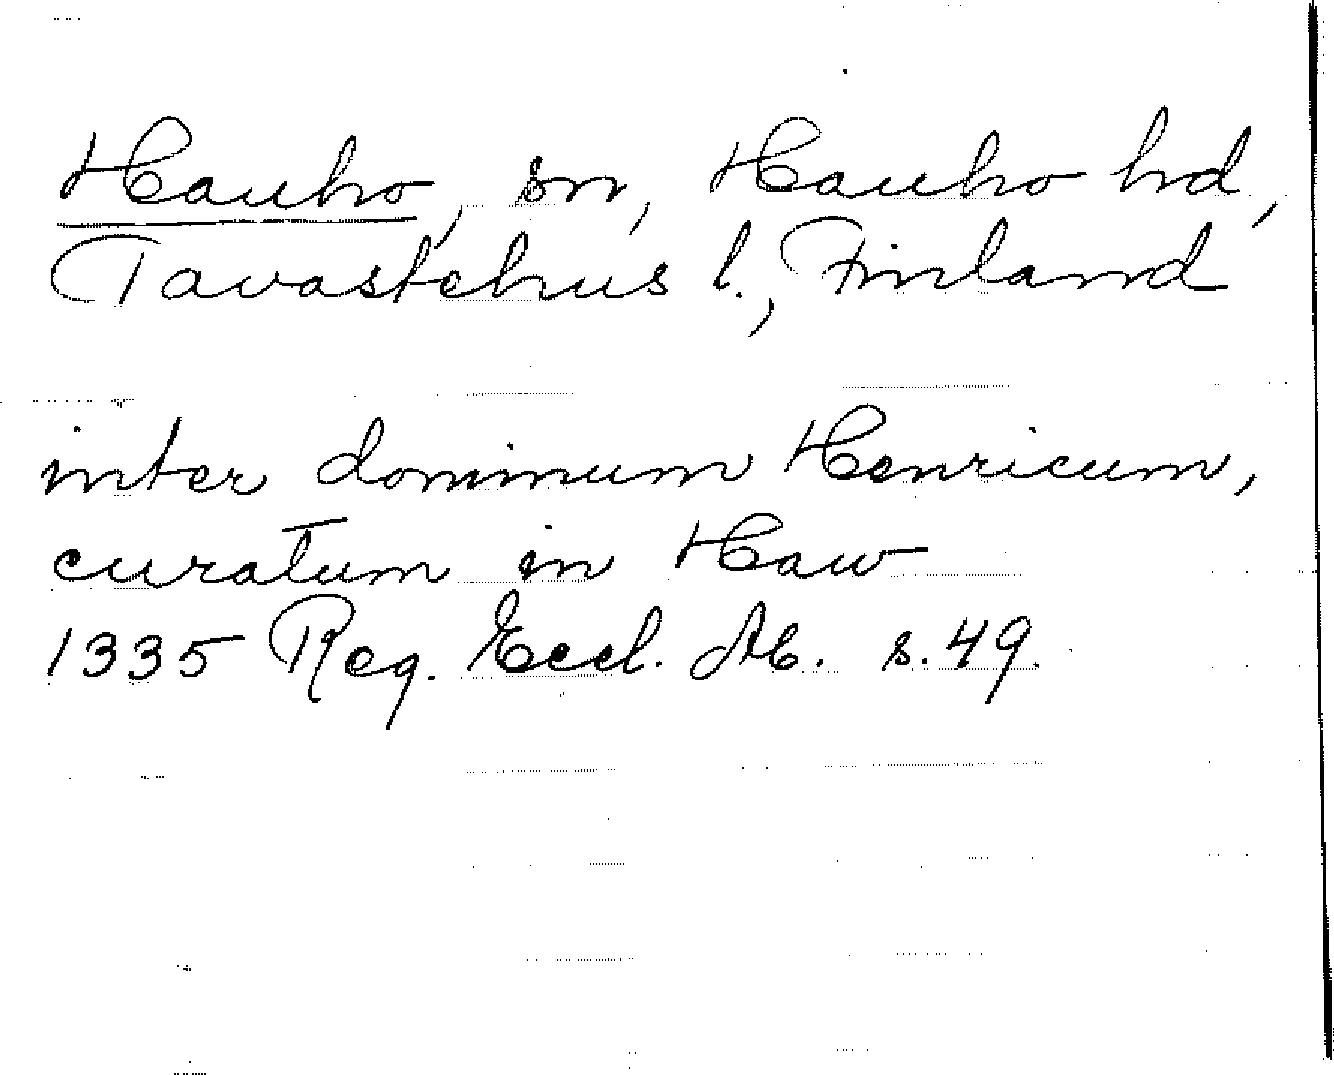 Hauho, sn, Hauho hd,
Tavastehus l., Finland
inter dominum Henricum,
curatum in Haw
1335 Reg. Eccl. Ab. s. 49.